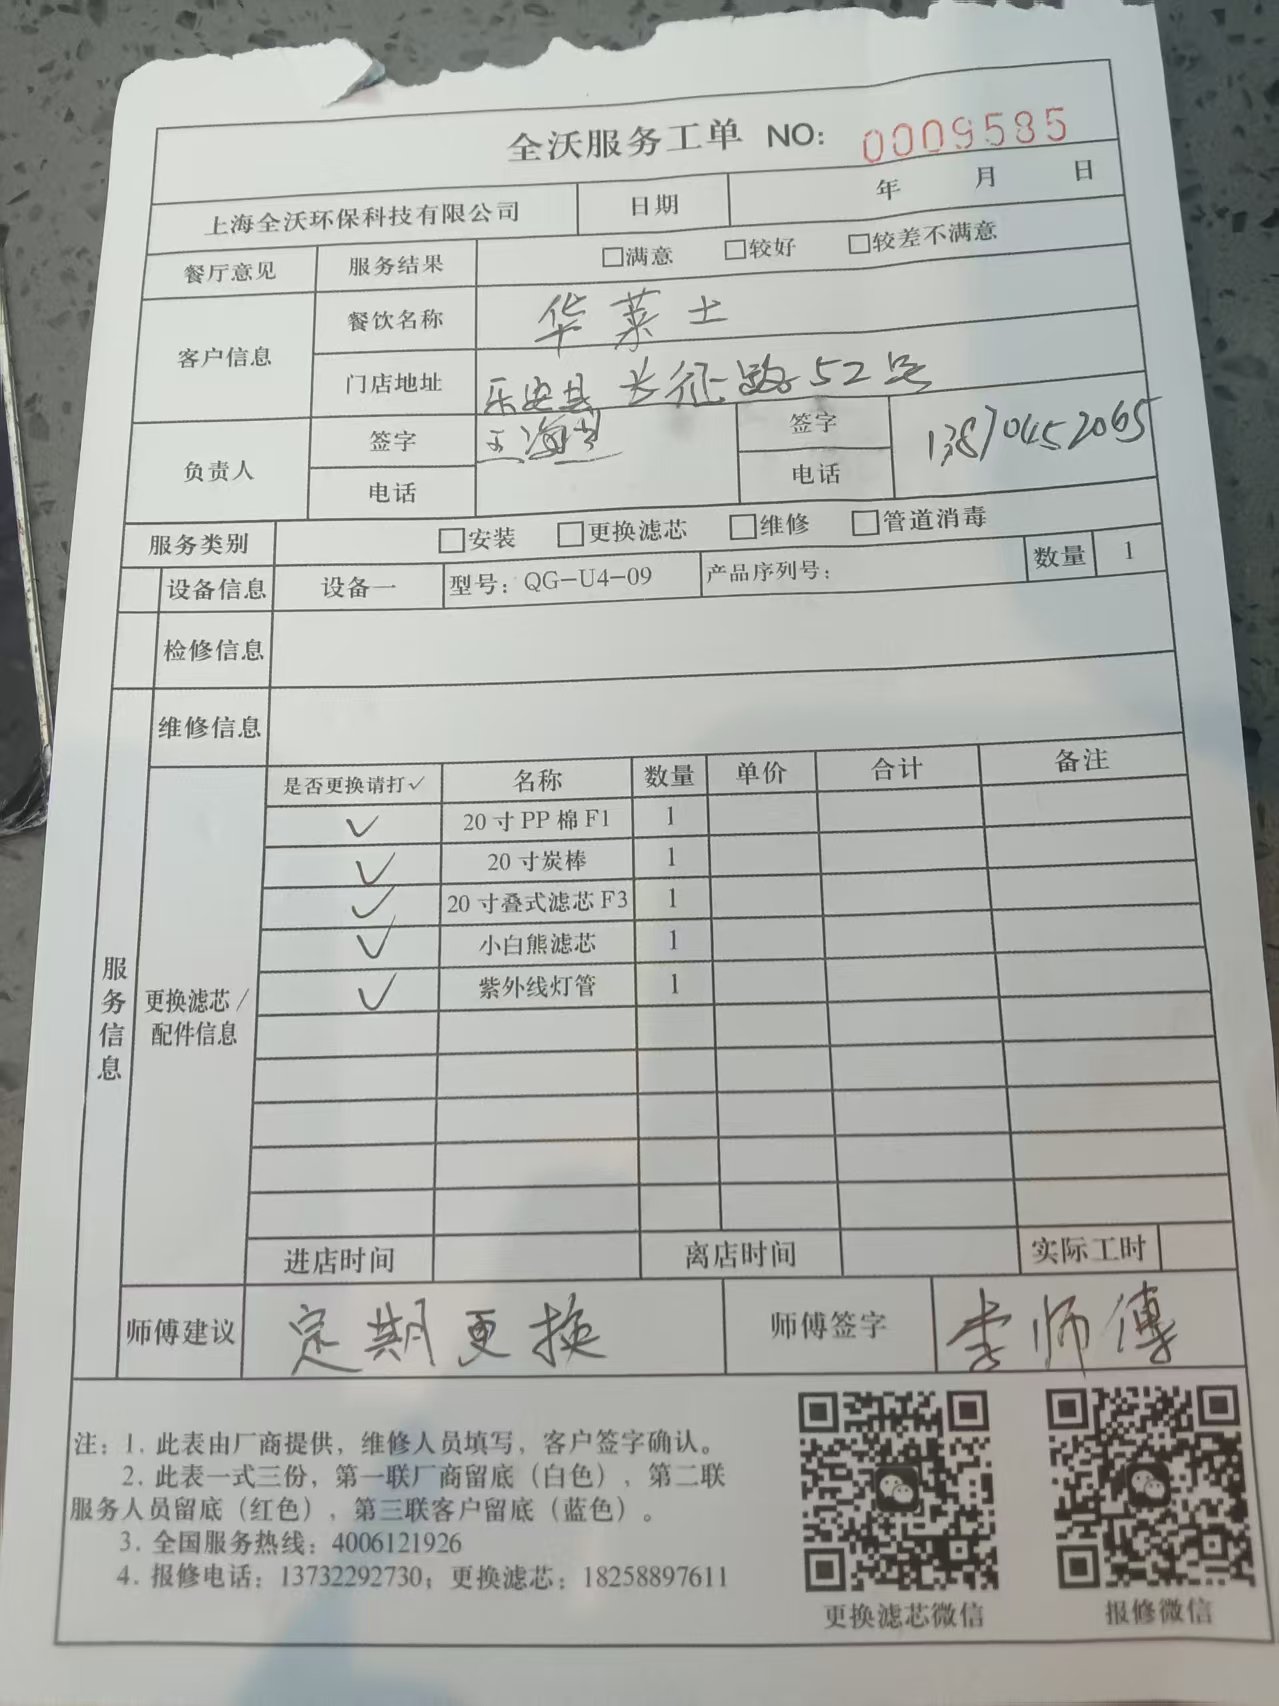 全沃服务工单 NO: 0009585
上海全沃环保科技有限公司 日期 年 月 日
餐厅意见 服务结果 □满意 □较好 □较差不满意
客户信息 餐饮名称 华莱士
门店地址 乐安县长征路52号
负责人 签字 签字 13870452065
电话 电话
服务类别 □安装 □更换滤芯 □维修 □管道消毒
设备信息 设备一 型号：QG-U4-09 产品序列号： 数量 1
检修信息
维修信息
服务信息
更换滤芯/
配件信息
是否更换请打✓ 名称 数量 单价 合计 备注
✓ 20寸PP棉F1 1
✓ 20寸炭棒 1
✓ 20寸叠式滤芯F3 1
✓ 小白熊滤芯 1
✓ 紫外线灯管 1
进店时间 离店时间 实际工时
师傅建议 定期更换 师傅签字 李师傅
注：1. 此表由厂商提供，维修人员填写，客户签字确认。
2. 此表一式三份，第一联厂商留底（白色），第二联
服务人员留底（红色），第三联客户留底（蓝色）。
3. 全国服务热线：4006121926
4. 报修电话：13732292730；更换滤芯：18258897611
更换滤芯微信 报修微信